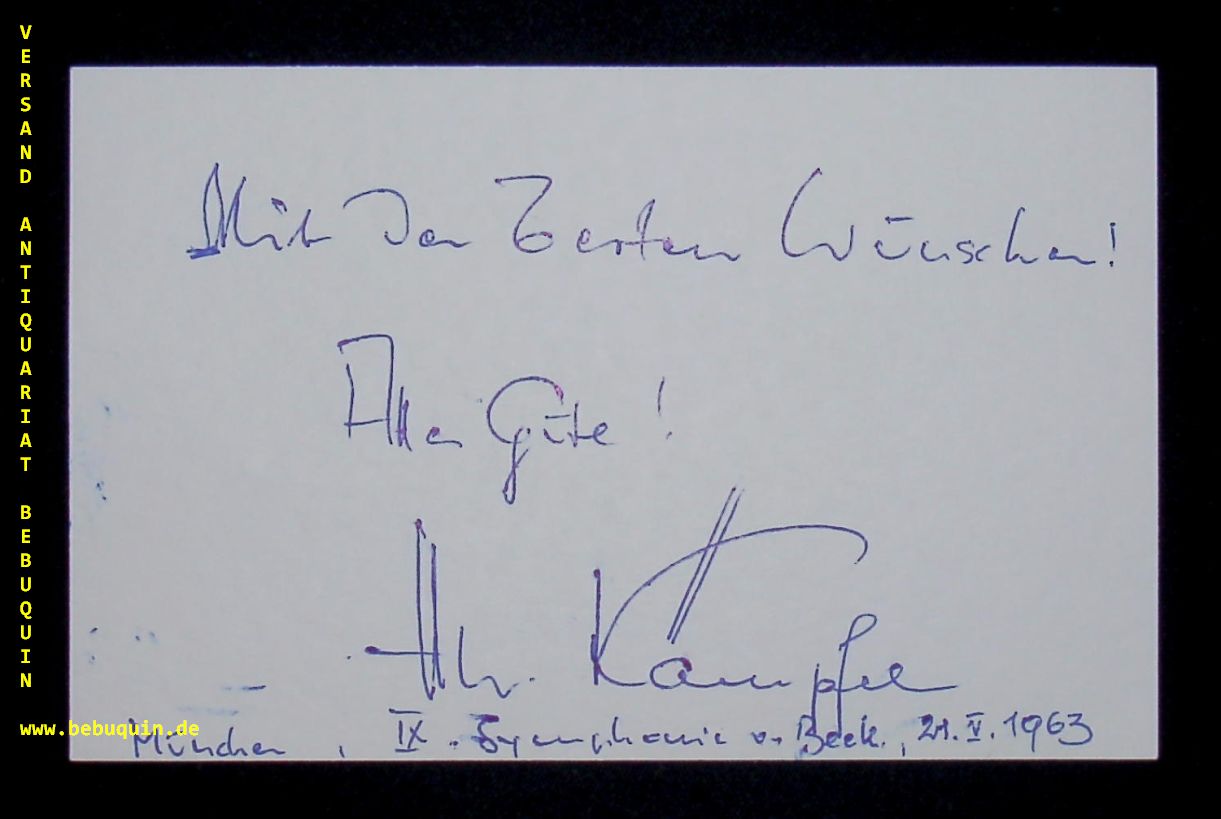 VERSAND ANTIQUARIAT BEBUQUIN
Mit den besten Wünschen!
Alles Gute!
Kämpfel
www.bebuquin.de
München, IX. Symphonie v. Beeth., 21.V.1963